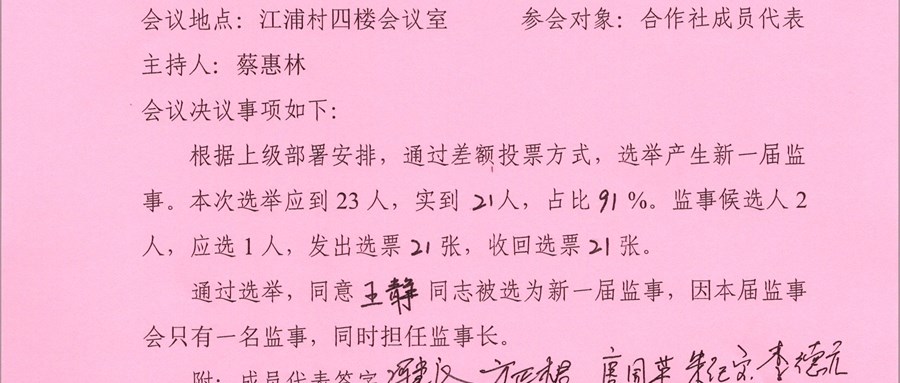 会议地点：江浦村四楼会议室 参会对象：合作社成员代表
主持人：蔡惠林
会议决议事项如下：
根据上级部署安排，通过差额投票方式，选举产生新一届监
事。本次选举应到 23 人，实到 21人，占比 91 %。监事候选人 2
人，应选 1 人，发出选票 21 张，收回选票 21 张。
通过选举，同意 王静 同志被选为新一届监事，因本届监事
会只有一名监事，同时担任监事长。
附：成员代表签字